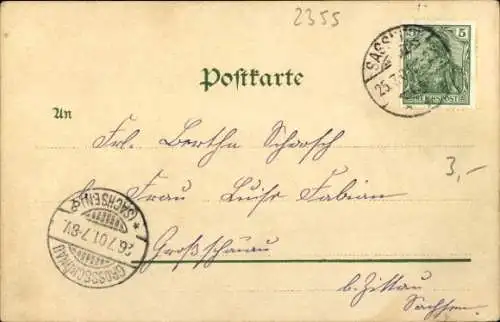 2355
Postkarte
5
SASSNITZ
25.7.
REICHSPOST
An
Frl. Bertha Schorsch
Frau Luise Fabian
3,-
Großschönau
b. Zittau
Sachsen.
GROSSSCHÖNAU
26.7.01.7-8V.
* (SACHSEN)